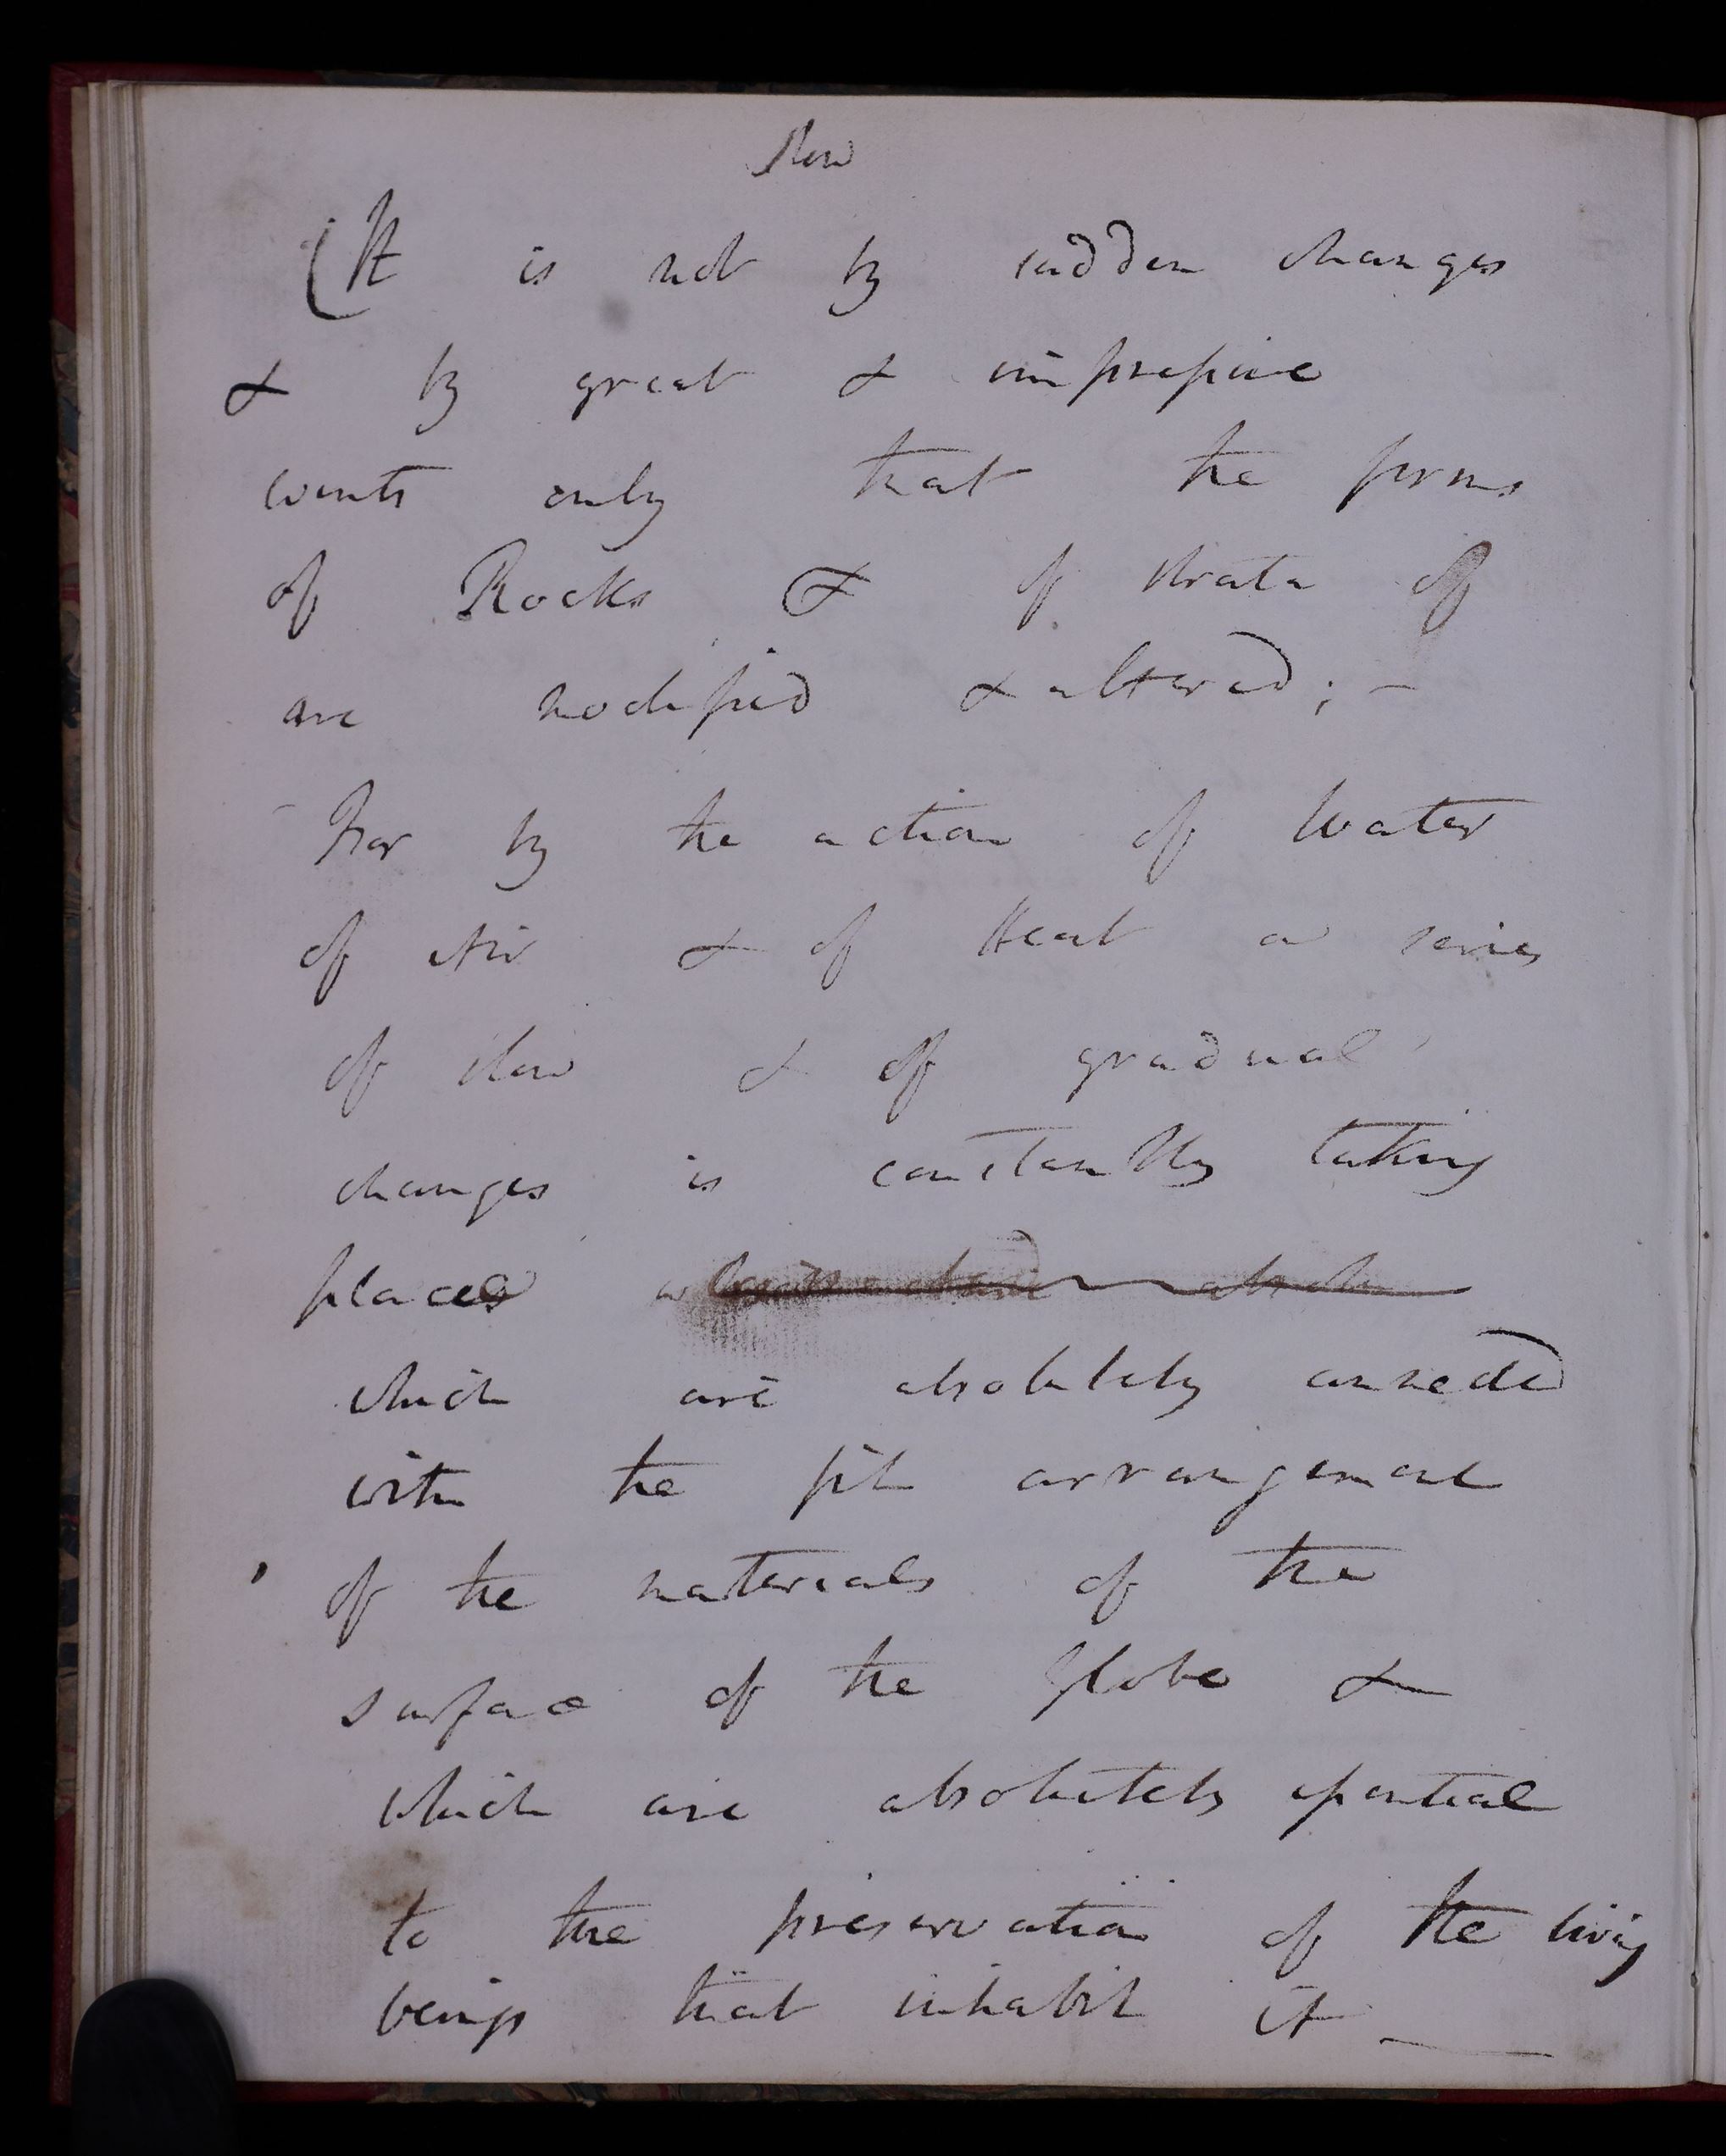 Slow
(It is not by sudden changes
& by great & impressive
events only that the forms
of Rocks & of strata of
are modified & altered; –
– For by the action of Water
of Air & of Heat a series
of slow & of gradual
changes is constantly taking
place
which are absolutely connected
with the fit arrangement
of the materials of the
surface of the Globe &
which are absolutely essential
to the preservation of the living
beings that inhabit it —